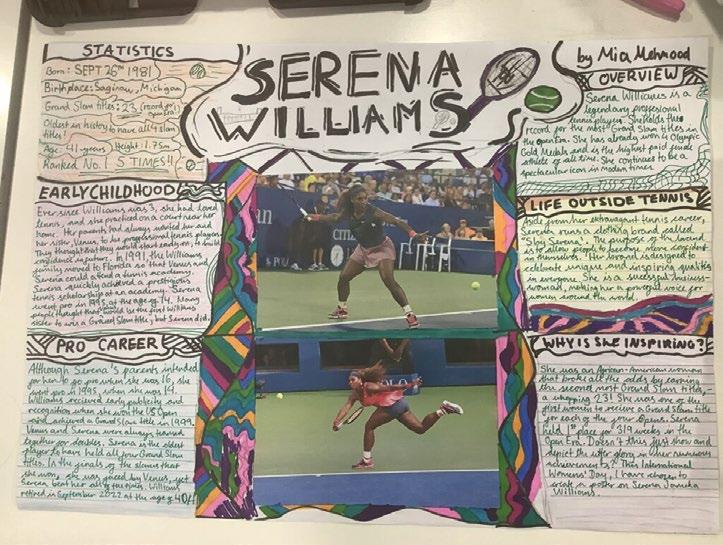 STATISTICS
Born: SEPT 26TH 1981
Birthplace: Saginaw, Michigan
Grand Slam titles: 23 (record in
open Era)
Oldest in history to have all 4 slam
titles!
Age: 41-years Height: 1.75m
Ranked No. 1 5 TIMES!!
SERENA
WILLIAMS
by Mia Mehmood
OVERVIEW
Serena Williams is a
legendary professional
tennis player. She holds the
record for the most Grand Slam titles in
the open Era. She has already won 4 Olympic
Gold Medals and is the highest paid female
athlete of all time. She continues to be a
spectacular icon in modern times.
EARLY CHILDHOOD
Ever since Williams was 3, she had loved
tennis, and she practiced on a court near her
home. Her parents had always wanted her and
her sister, Venus, to be professional tennis players.
They thought that they would start early on, to build
confidence in future. In 1991, the Williams
family moved to Florida so that Venus and
Serena could attend a tennis academy.
Serena quickly achieved a prestigious
tennis scholarship at an academy. Serena
went pro in 1995 at the age of 14. Many
people thought that would be the first Williams
sister to win a Grand Slam title, but Serena did.
LIFE OUTSIDE TENNIS
Aside from her extravagant tennis career,
Serena runs a clothing brand called
The purpose of the brand
is to allow people to
themselves". Her brand is designed to
celebrate unique and inspiring qualities
in everyone. She is a successful business
woman, making her a powerful voice for
women around the world.
PRO CAREER
Although Serena's parents intended
for her to go pro when she was 16, she
went pro in 1995, when she was 14.
Williams received early publicity and
recognition when she won the US Open
and achieved a Grand Slam title in 1999.
Venus and Serena were always teamed
together for doubles. Serena is the oldest
player to have held all four Grand Slam
titles. In the finals of the slams that
she won, she was faced by Venus, yet
Serena beat her all of the times. Williams
retired in September 2022 at the age of 40/41
WHY IS SHE INSPIRING?
She was an African-American woman
that broke all the odds by earning
the second most Grand Slam titles,
a whopping 23! She was one of the
first women to receive a Grand Slam title
for each of the four Opens. Serena
held 1st place for 319 weeks in the
Open Era. Doesn't this just show and
depict the utter glory in her numerous
achievements? This International
Womens' Day, I have chosen to
create a poster on Serena Jameka
Williams.
citi